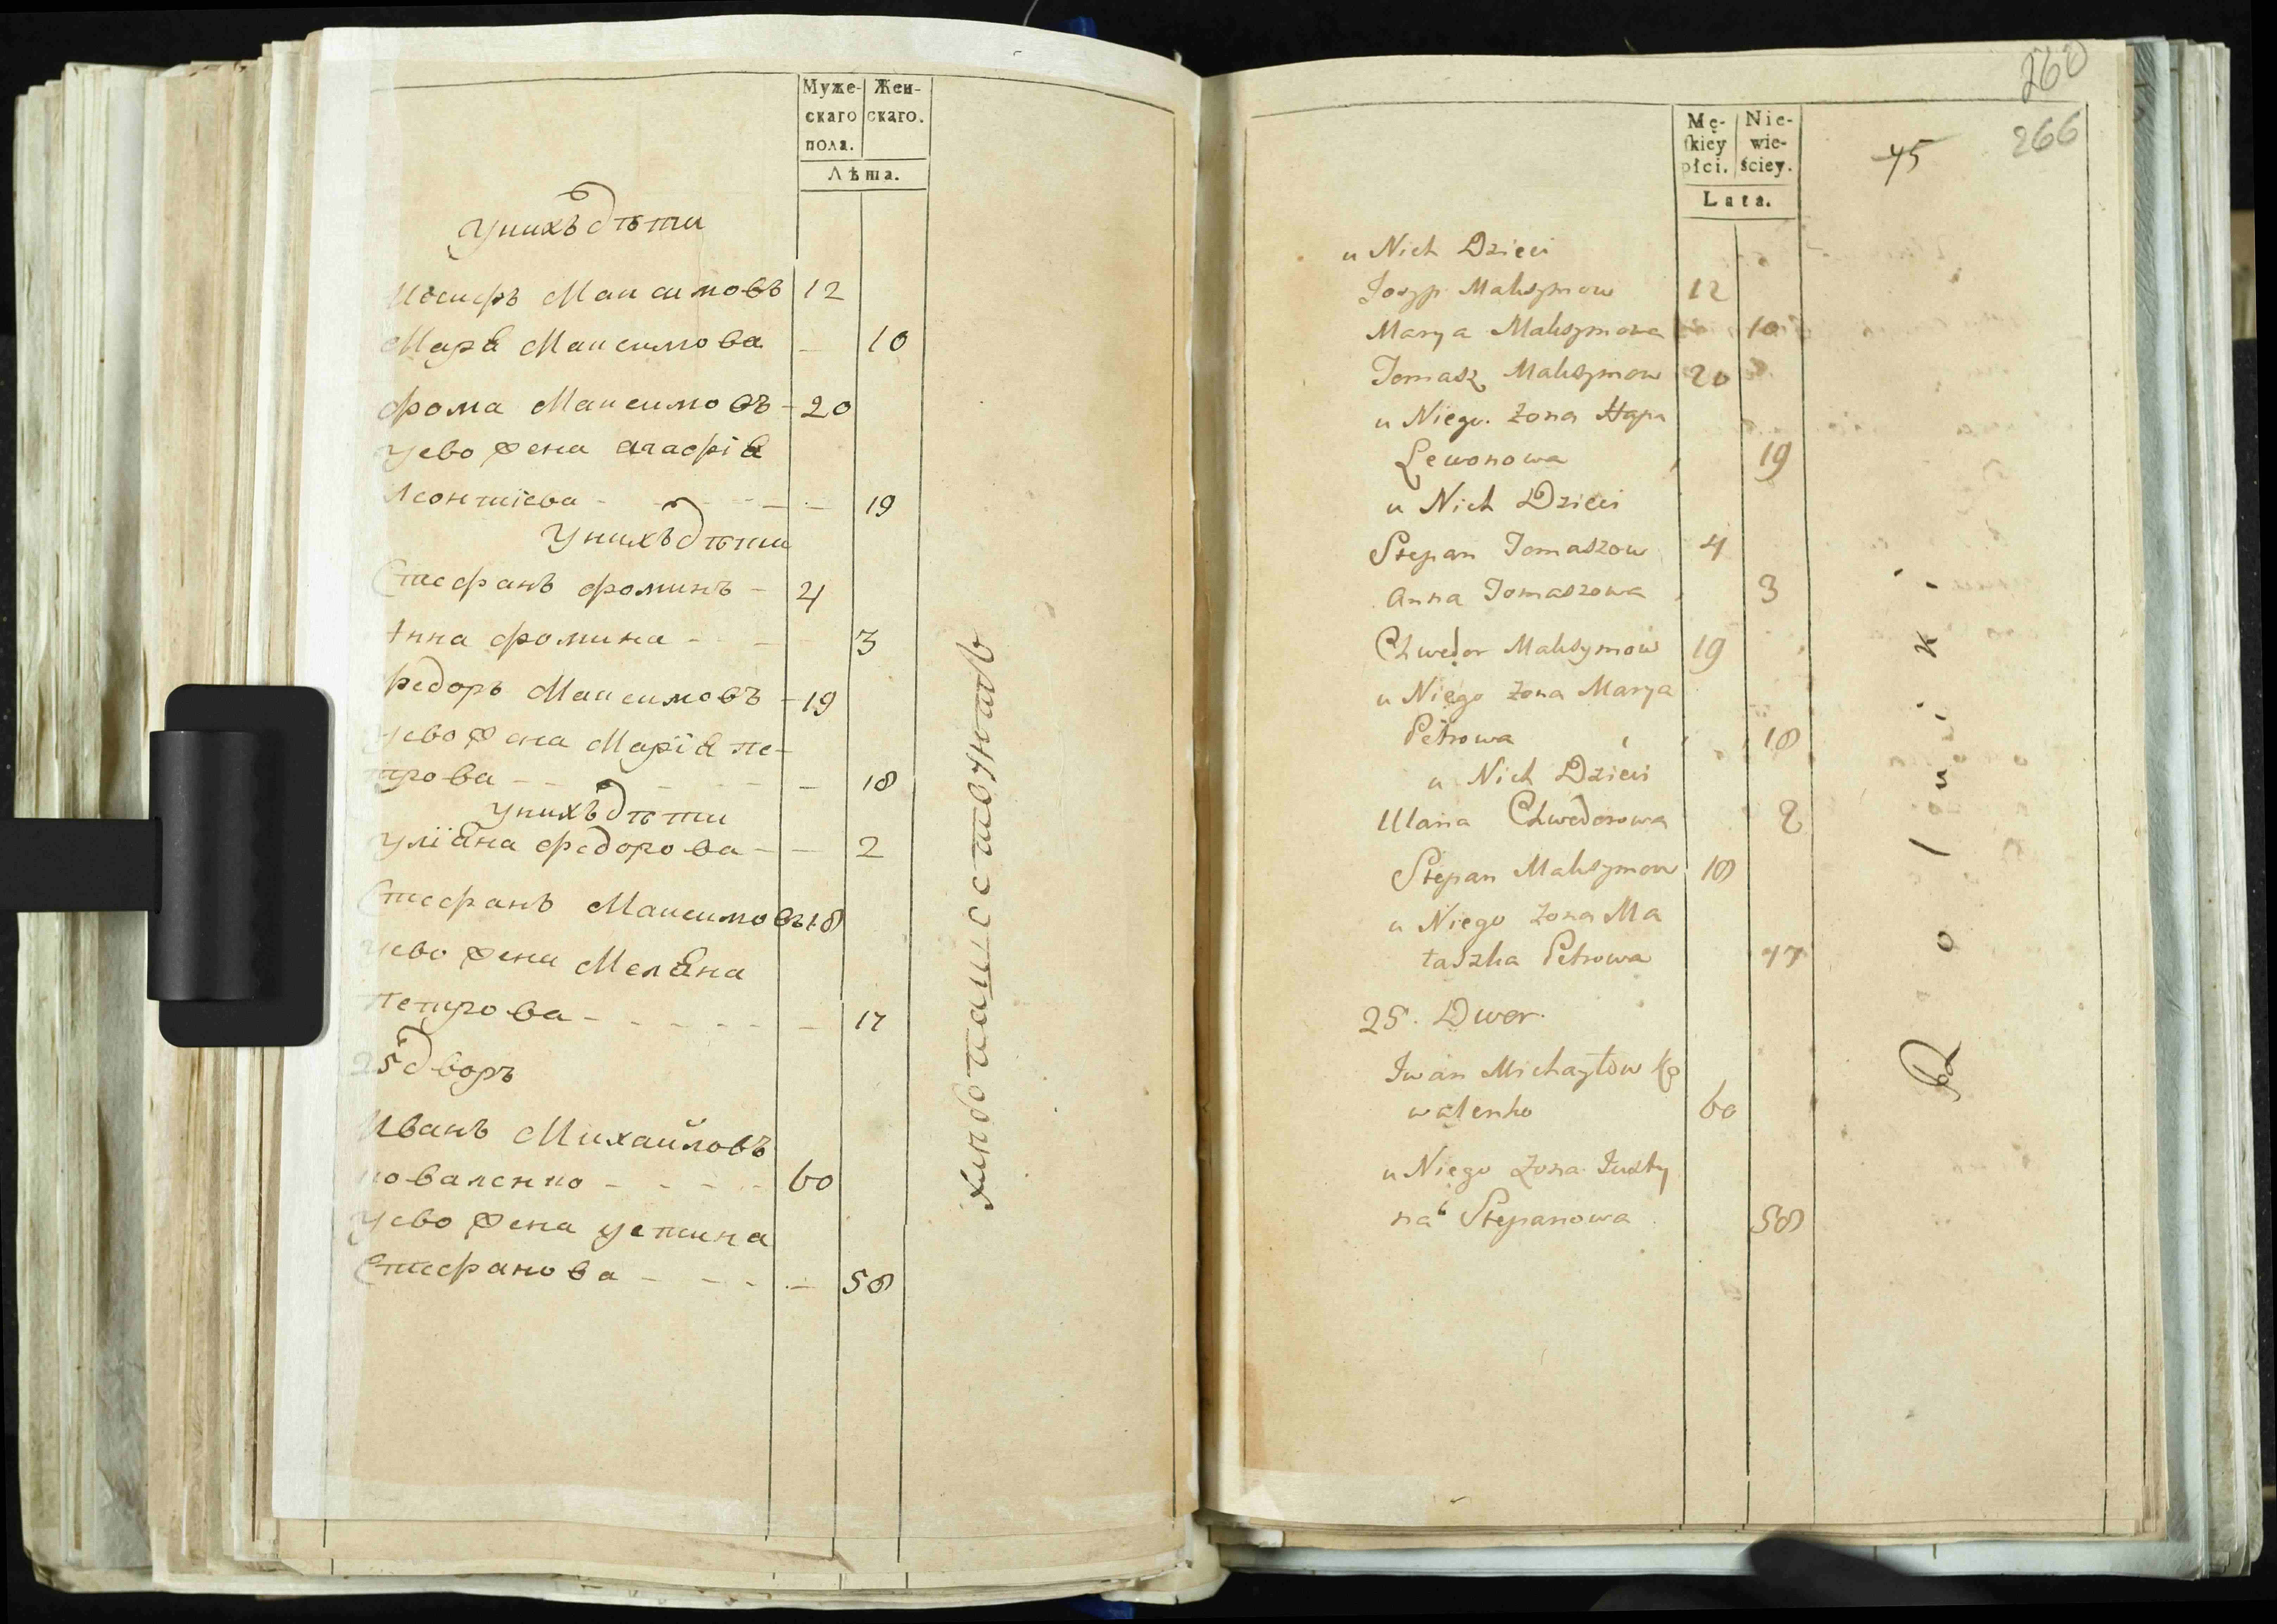 Муже-
скаго
пола.
Жен-
скаго.
Лѣта.
У нихъ дѣти
Иосифъ Максимовъ 12
Марꙗ Максимова — 10
Фома Максимовъ - 20
У ево жена агафіꙗ
Леонтіева - - - 19
У нихъ дѣти
Стефанъ Фоминъ - 4
Анна Фомина - - 3
Федоръ Максимовъ - 19
У ево жена Маріꙗ пе-
трова - - - 18
У нихъ дѣти
Уліꙗна Федорова - - 2
Стефанъ Максимовъ 18
У ево жена Мелꙗна
Петрова - - - - - 17
25 дворъ
Иванъ Михайловъ
коваленко - - - - 60
У ево жена устина
Стефанова - - - - 58
хлѣбопашествуютъ
260
266
45
Mę-
ſkiey
płci.
Nie-
wie-
ściey.
Lata.
u Nich Dzieci
Josyp Maksymow 12
Marya Maksymowa 10
Tomasz Maksymow 20
u Niego Żona Hapa
Lewonowa 19
u Nich Dzieci
Stepan Tomaszow 4
Anna Tomaszowa 3
Chwedor Maksymow 19
u Niego Żona Marya
Petrowa 18
u Nich Dzieci
Ulana Chwedorowa 2
Stepan Maksymow 18
u Niego Żona Ma
taszka Petrowa 17
25. Dwor.
Iwan Michayłow Ko
walenko 60
u Niego Żona Justy
na Stepanowa 58
Rolniki.